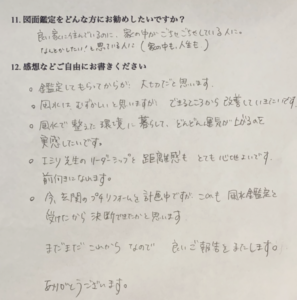 11. 図面鑑定をどんな方にお勧めしたいですか？
良い家に住んでいるのに、家の中がごちゃごちゃしている人に。
なんとかしたい！と思っている人に（家の中も、人生も）
12. 感想などご自由にお書きください
○ 鑑定してもらってからが 大切だと思います。
○ 風水って むずかしいと思いますが できるところから 改善していきたいです。
○ 風水で 整えた 環境に 暮らして、どんどん運気が上がるのを
実感したいです。
○ エミリ先生の リーダーシップと 距離感も とても 心地よいです。
前向きになれます。
○ 今、玄関のプチリフォームを計画中ですが、これも 風水鑑定を
受けたから 決断できたかと思います
まだまだ これから なので 良いご報告をまたします。
ありがとうございます。